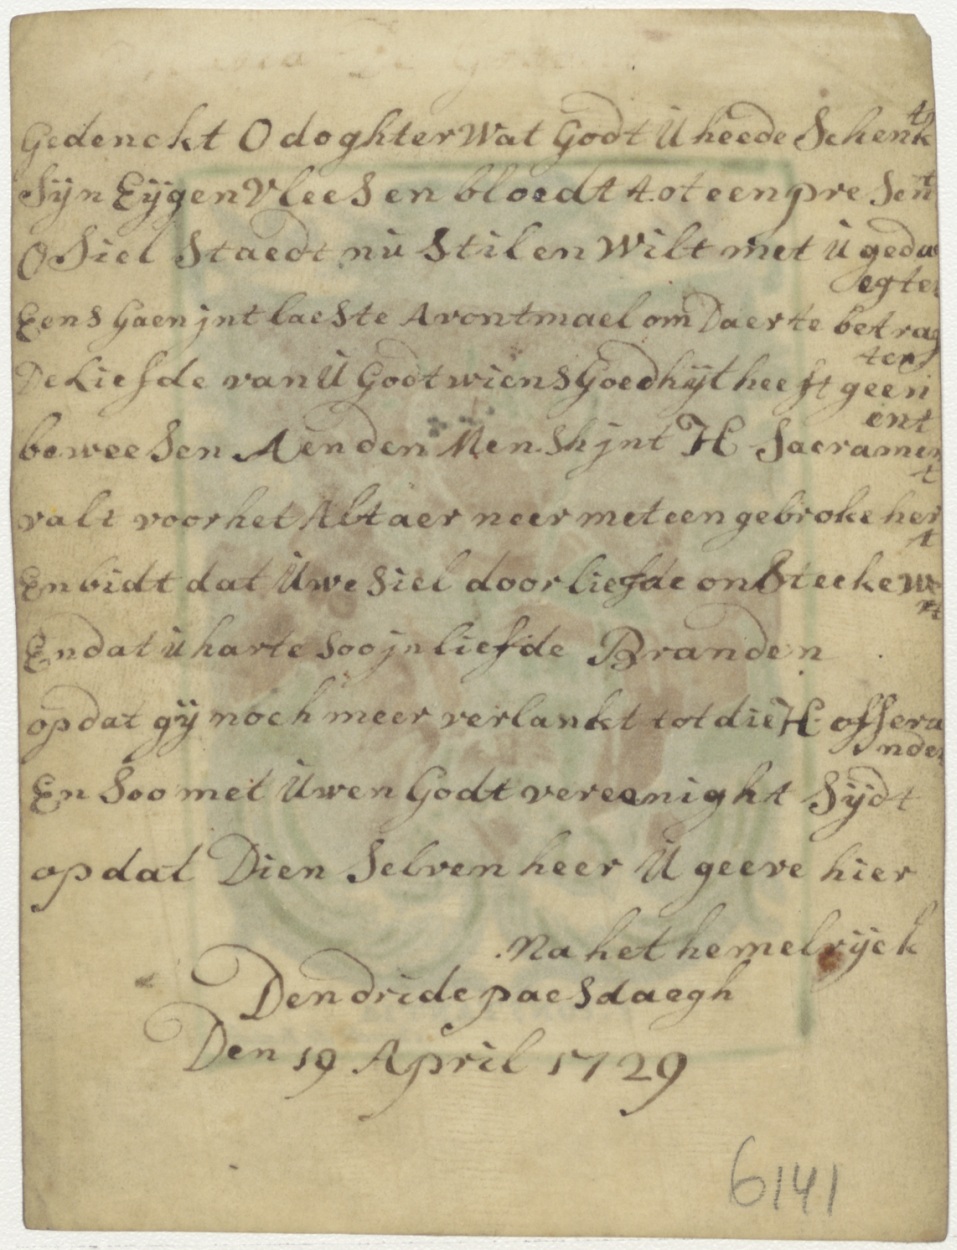 Gedenckt O doghter Wat Godt U heede Schenkt
Syn Eygen Vlees en bloedt tot een pre sent
O Siel Staedt nu Stil en Wilt met U gedaegten
Eens Gaen int laeste Avontmael om Daer te betragten
De Liefde van U Godt wiens Goedhyt heeft geen ent
bewee sen Aen den Mensh int H Sacrament
valt voor het Altaer neer met een gebroke hert
En bidt dat Uwe Siel door liefde onsteeke wert
En dat u harte soo in liefde Branden
op dat gy noch meer verlankt tot die H offeranden
En Soo met Uwen Godt vereenight Sydt
op dat Dien Selven heer U geeve hier
Na het hemelryck
Den dride paesdaegh
Den 19 April 1729
6141